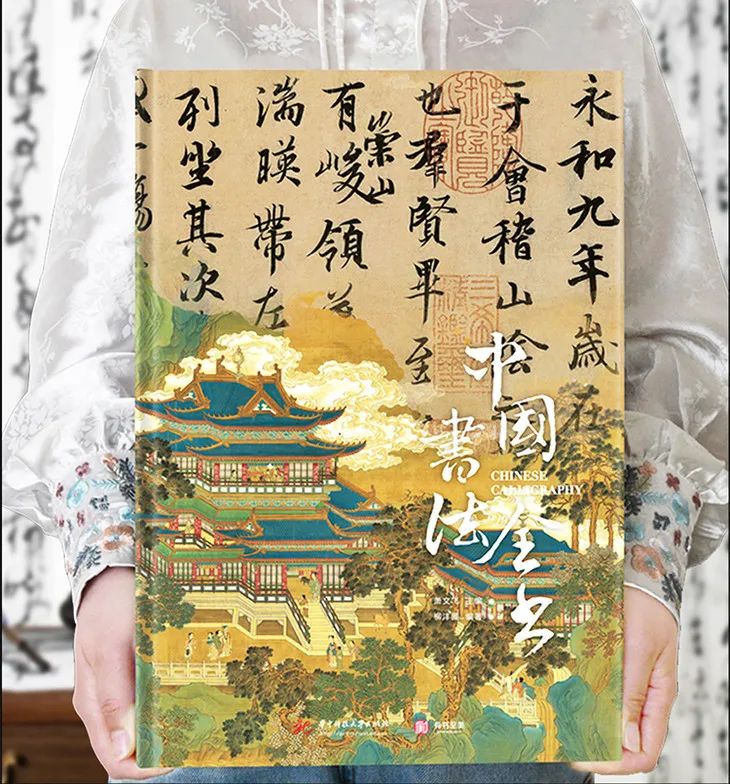 永和九年歲在
于會稽山陰
也羣賢畢至
有崇山峻領
湍暎帶左
列坐其次
中國
書法
全书
CHINESE
CALLIGRAPHY
华中科技大学出版社
有书至美